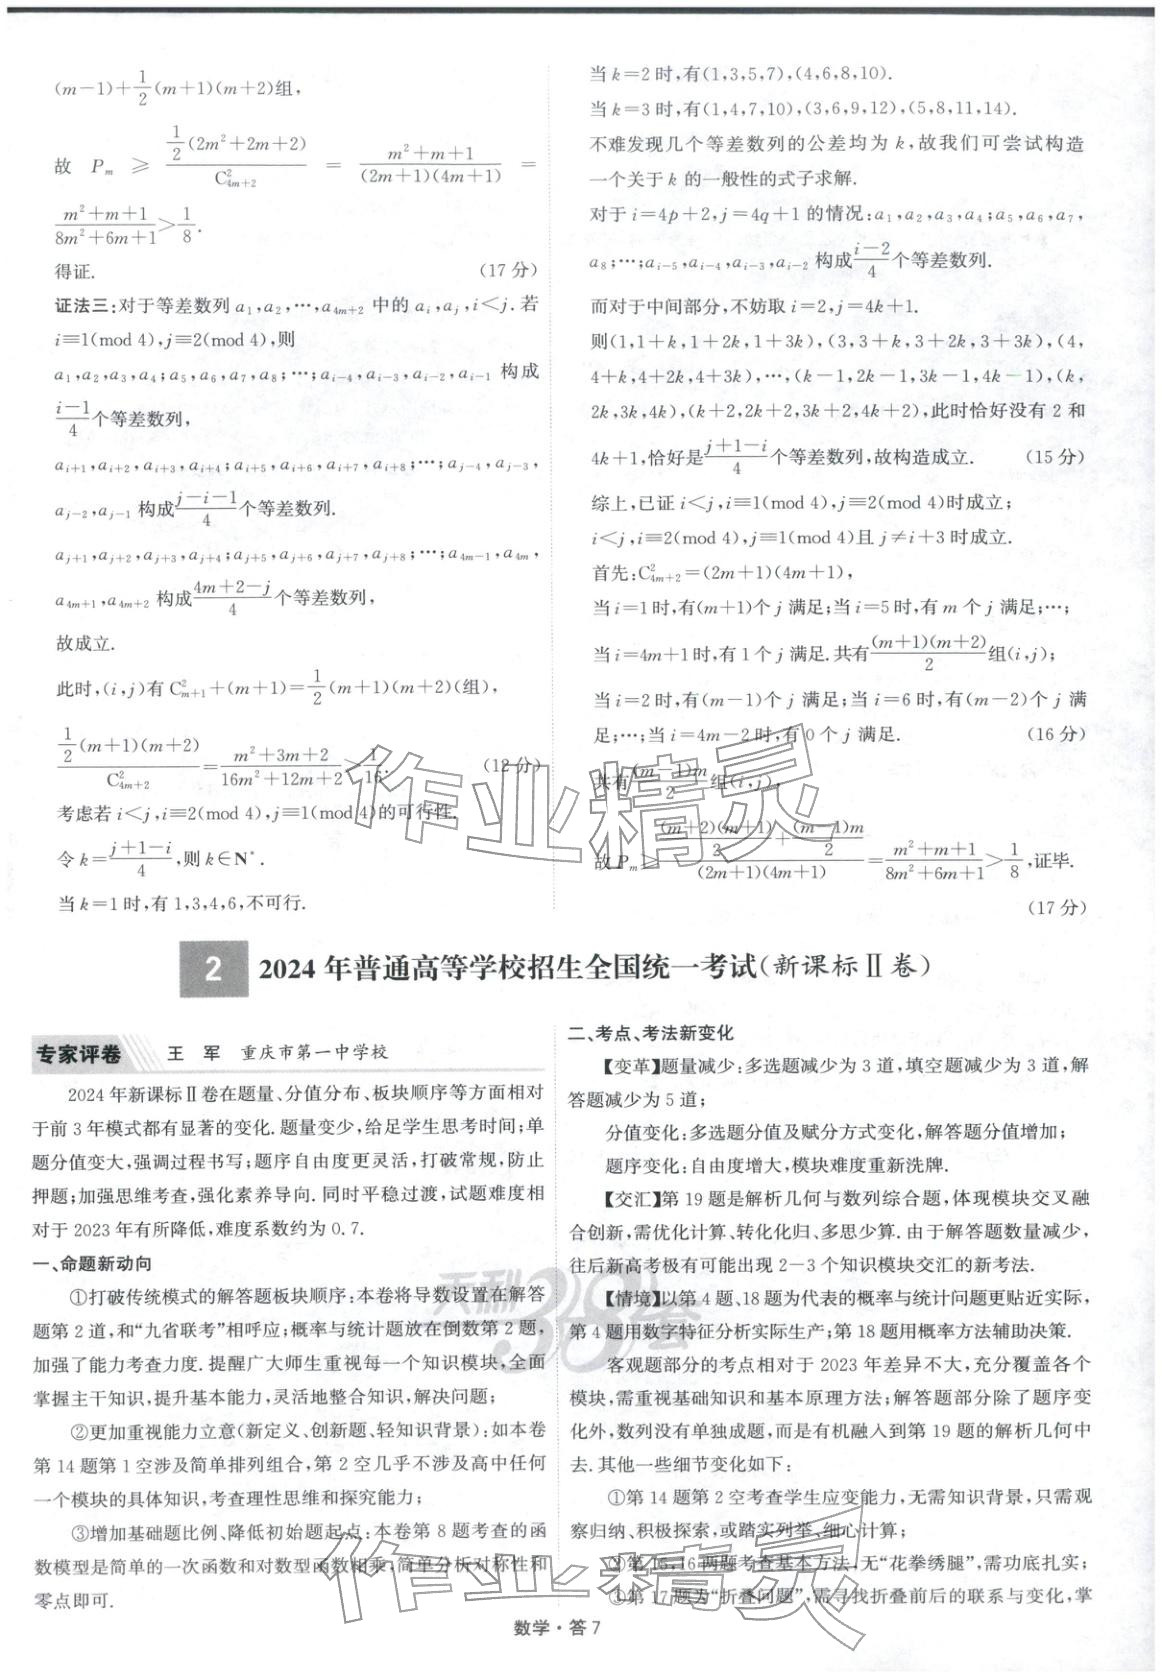 (m-1)+1/2(m+1)(m+2)组,
故 Pₘ ≥ [1/2(2m²+2m+2)]/C²₄ₘ₊₂ = (m²+m+1)/[(2m+1)(4m+1)] =
(m²+m+1)/(8m²+6m+1)>1/8.
得证. (17分)
证法三:对于等差数列a₁,a₂,…,a₄ₘ₊₂中的aᵢ,aⱼ,i<j.若
i≡1(mod 4),j≡2(mod 4),则
a₁,a₂,a₃,a₄;a₅,a₆,a₇,a₈;…;aᵢ₋₄,aᵢ₋₃,aᵢ₋₂,aᵢ₋₁构成
(i-1)/4个等差数列,
aᵢ₊₁,aᵢ₊₂,aᵢ₊₃,aᵢ₊₄;aᵢ₊₅,aᵢ₊₆,aᵢ₊₇,aᵢ₊₈;…;aⱼ₋₄,aⱼ₋₃,
aⱼ₋₂,aⱼ₋₁构成(j-i-1)/4个等差数列.
aⱼ₊₁,aⱼ₊₂,aⱼ₊₃,aⱼ₊₄;aⱼ₊₅,aⱼ₊₆,aⱼ₊₇,aⱼ₊₈;…;a₄ₘ₋₁,a₄ₘ,
a₄ₘ₊₁,a₄ₘ₊₂构成(4m+2-j)/4个等差数列,
故成立.
此时,(i,j)有C²ₘ₊₁+(m+1)=1/2(m+1)(m+2)(组),
[1/2(m+1)(m+2)]/C²₄ₘ₊₂=(m²+3m+2)/(16m²+12m+2)>1/16. (12分)
考虑若i<j,i≡2(mod 4),j≡1(mod 4)的可行性.
令k=(j+1-i)/4,则k∈N*.
当k=1时,有1,3,4,6,不可行.
当k=2时,有(1,3,5,7),(4,6,8,10).
当k=3时,有(1,4,7,10),(3,6,9,12),(5,8,11,14).
不难发现几个等差数列的公差均为k,故我们可尝试构造
一个关于k的一般性的式子求解.
对于i=4p+2,j=4q+1的情况:a₁,a₂,a₃,a₄;a₅,a₆,a₇,
a₈;…;aᵢ₋₅,aᵢ₋₄,aᵢ₋₃,aᵢ₋₂构成(i-2)/4个等差数列.
而对于中间部分,不妨取i=2,j=4k+1.
则(1,1+k,1+2k,1+3k),(3,3+k,3+2k,3+3k),(4,
4+k,4+2k,4+3k),…,(k-1,2k-1,3k-1,4k-1),(k,
2k,3k,4k),(k+2,2k+2,3k+2,4k+2),此时恰好没有2和
4k+1,恰好是(j+1-i)/4个等差数列,故构造成立. (15分)
综上,已证i<j,i≡1(mod 4),j≡2(mod 4)时成立;
i<j,i≡2(mod 4),j≡1(mod 4)且j≠i+3时成立.
首先:C²₄ₘ₊₂=(2m+1)(4m+1),
当i=1时,有(m+1)个j满足;当i=5时,有m个j满足;…;
当i=4m+1时,有1个j满足.共有(m+1)(m+2)/2组(i,j);
当i=2时,有(m-1)个j满足;当i=6时,有(m-2)个j满
足;…;当i=4m-2时,有0个j满足. (16分)
共有(m-1)m/2组(i,j),
故Pₘ≥[(m+2)(m+1)/2+(m-1)m/2]/[(2m+1)(4m+1)]=(m²+m+1)/(8m²+6m+1)>1/8,证毕.
(17分)
2 2024年普通高等学校招生全国统一考试(新课标Ⅱ卷)
专家评卷 王 军 重庆市第一中学校
2024年新课标Ⅱ卷在题量、分值分布、板块顺序等方面相对
于前3年模式都有显著的变化.题量变少,给足学生思考时间;单
题分值变大,强调过程书写;题序自由度更灵活,打破常规,防止
押题;加强思维考查,强化素养导向.同时平稳过渡,试题难度相
对于2023年有所降低,难度系数约为0.7.
一、命题新动向
①打破传统模式的解答题板块顺序:本卷将导数设置在解答
题第2道,和“九省联考”相呼应;概率与统计题放在倒数第2题,
加强了能力考查力度.提醒广大师生重视每一个知识模块,全面
掌握主干知识,提升基本能力,灵活地整合知识,解决问题;
②更加重视能力立意(新定义、创新题、轻知识背景):如本卷
第14题第1空涉及简单排列组合,第2空几乎不涉及高中任何
一个模块的具体知识,考查理性思维和探究能力;
③增加基础题比例、降低初始题起点:本卷第8题考查的函
数模型是简单的一次函数和对数型函数相乘,简单分析对称性和
零点即可.
二、考点、考法新变化
【变革】题量减少:多选题减少为3道,填空题减少为3道,解
答题减少为5道;
分值变化:多选题分值及赋分方式变化,解答题分值增加;
题序变化:自由度增大,模块难度重新洗牌.
【交汇】第19题是解析几何与数列综合题,体现模块交叉融
合创新,需优化计算、转化化归、多思少算.由于解答题数量减少,
往后新高考极有可能出现2-3个知识模块交汇的新考法.
【情境】以第4题、18题为代表的概率与统计问题更贴近实际,
第4题用数字特征分析实际生产;第18题用概率方法辅助决策.
客观题部分的考点相对于2023年差异不大,充分覆盖各个
模块,需重视基础知识和基本原理方法;解答题部分除了题序变
化外,数列没有单独成题,而是有机融入到第19题的解析几何中
去.其他一些细节变化如下:
①第14题第2空考查学生应变能力,无需知识背景,只需观
察归纳、积极探索,或踏实列举、细心计算;
②第15,16两题考查基本方法,无“花拳绣腿”,需功底扎实;
③第17题为“折叠问题”,需寻找折叠前后的联系与变化,掌
数学·答7
作业精灵
天利38套
作业精灵